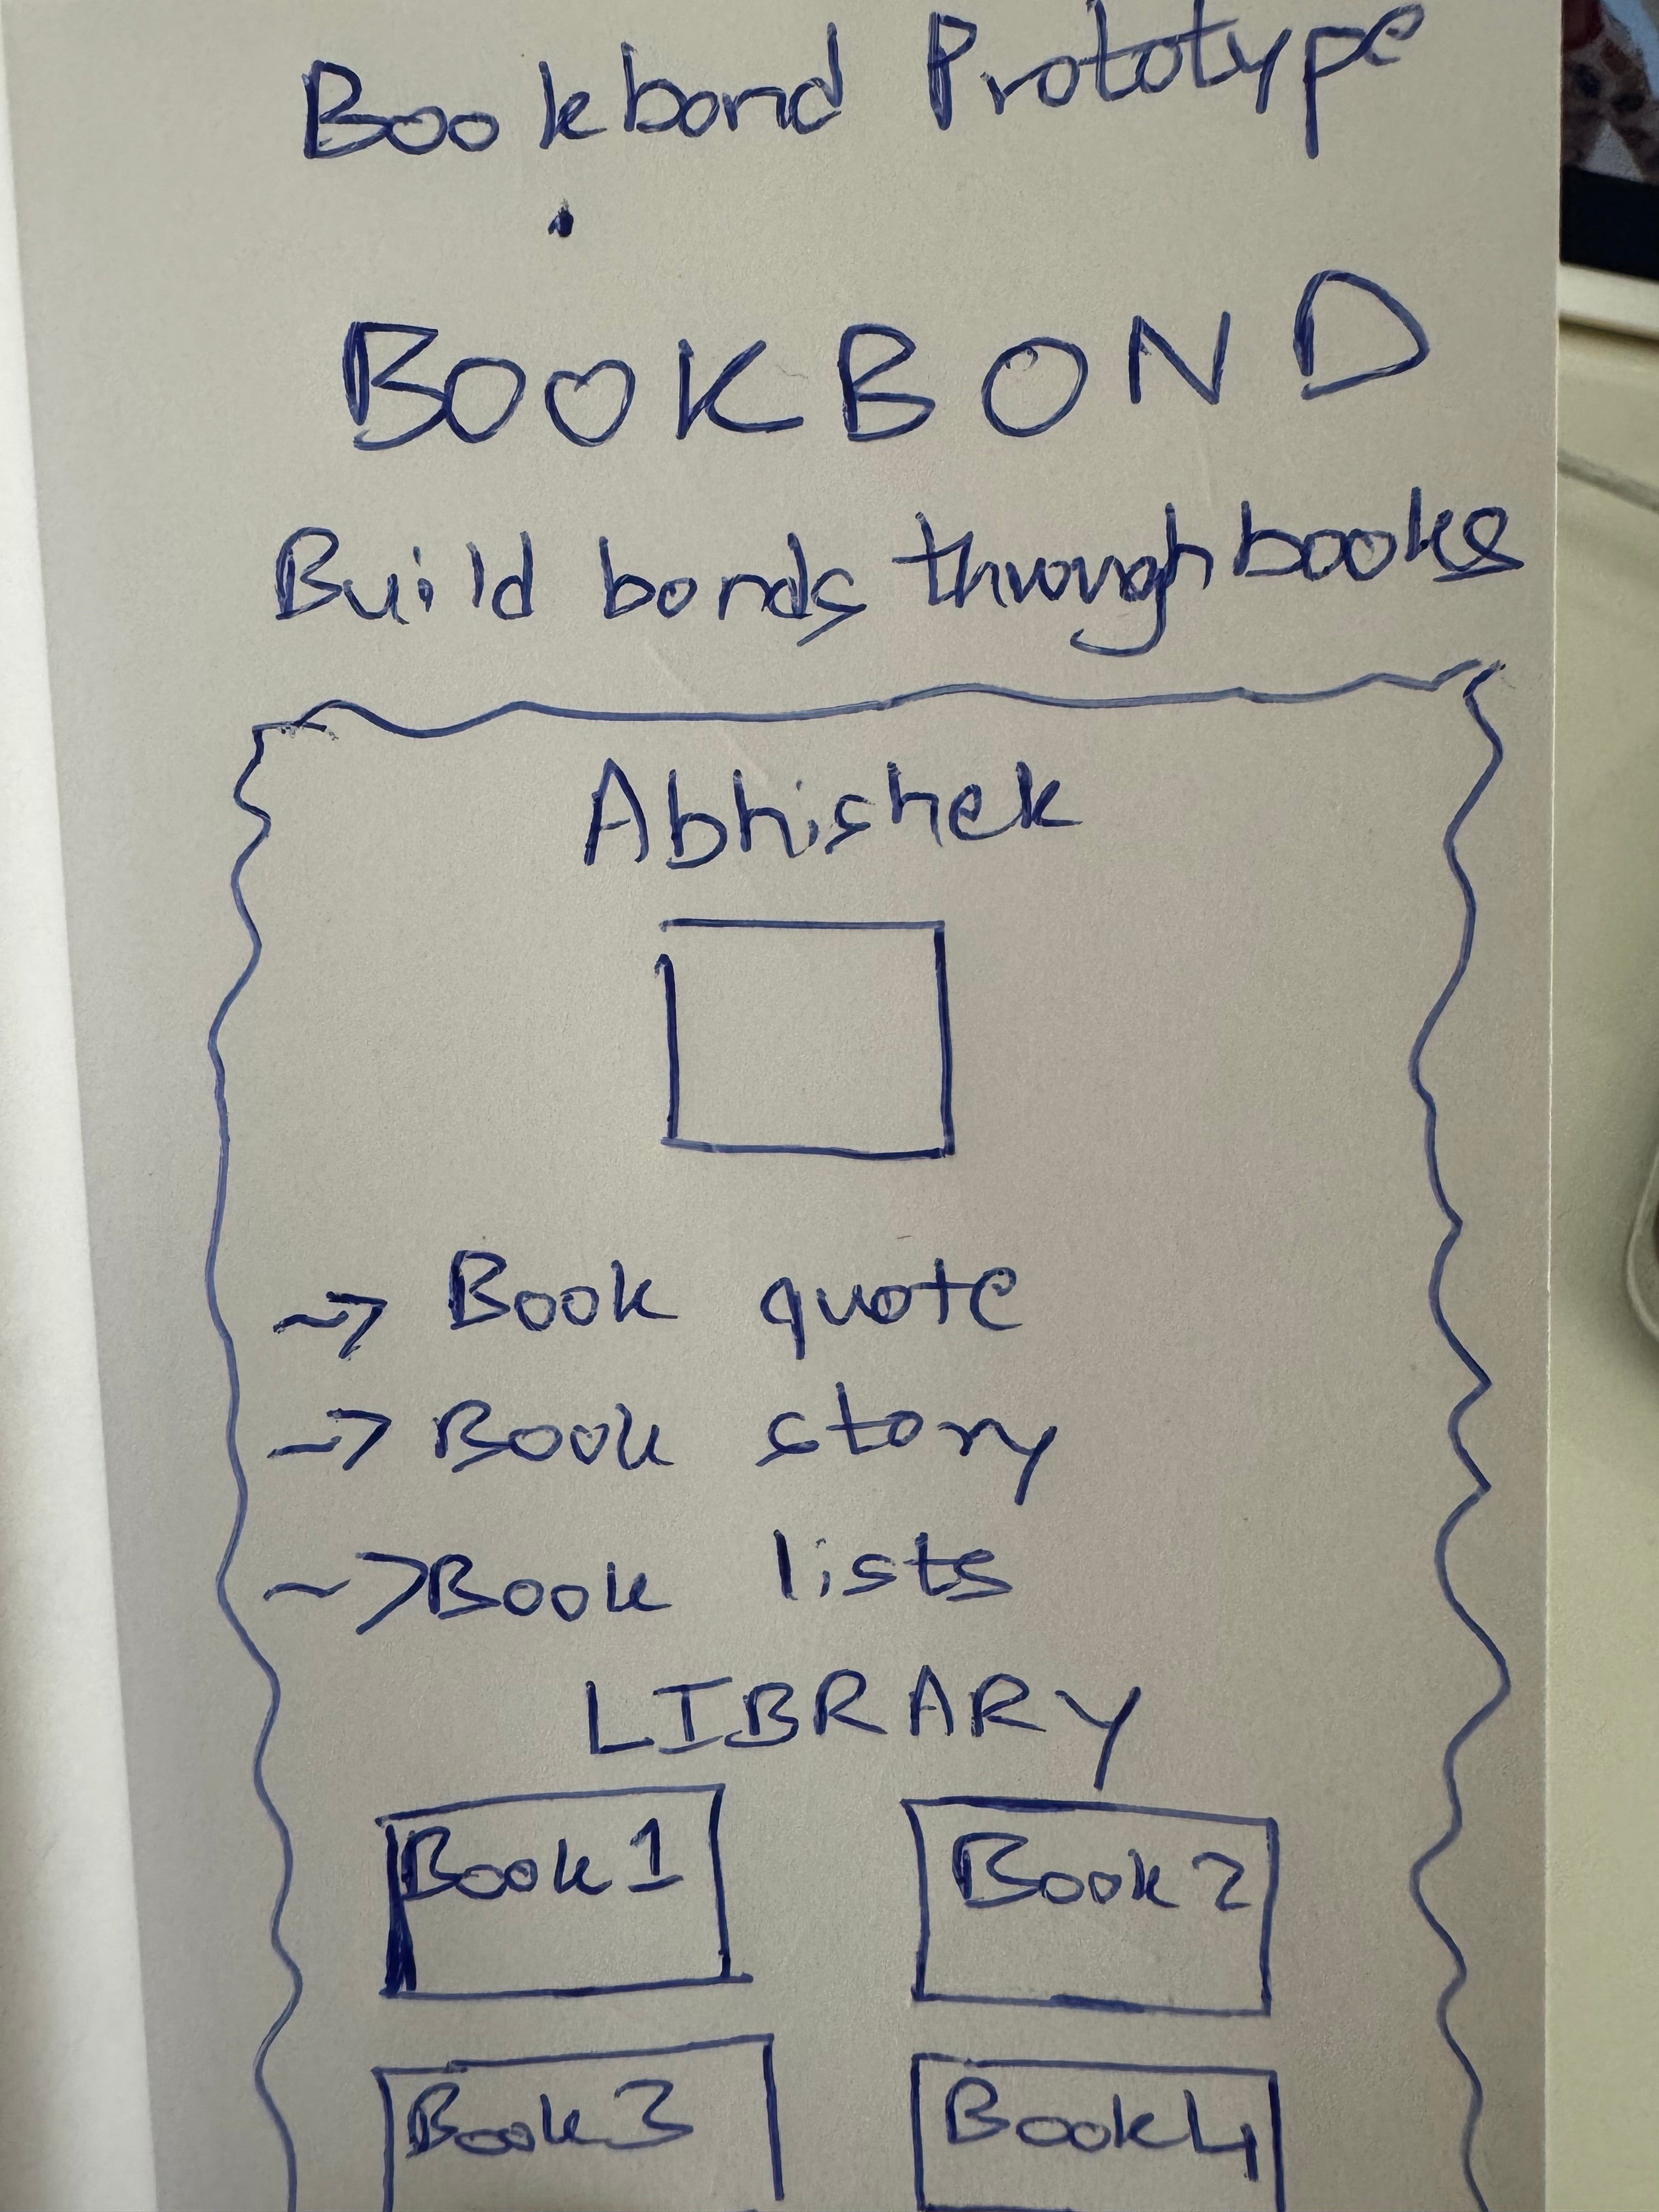 Bookbond Prototype
BOOKBOND
Build bonds through books
Abhishek
~> Book quote
~> Book story
~> Book lists
LIBRARY
Book 1 Book 2
Book 3 Book 4